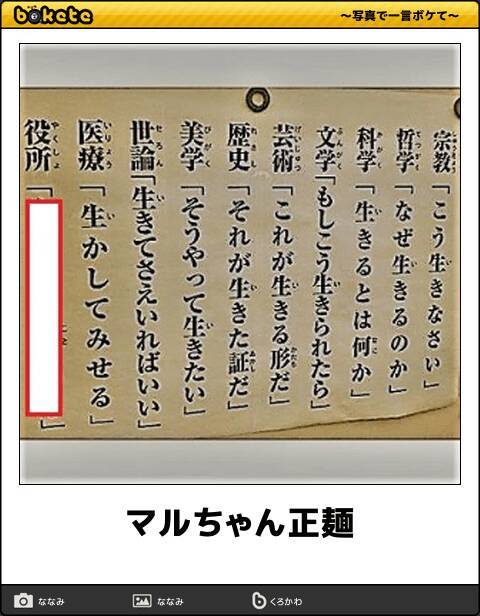 bokete
～写真で一言ボケて～
宗教「こう生きなさい」
哲学「なぜ生きるのか」
科学「生きるとは何か」
文学「もしこう生きられたら」
芸術「これが生きる形だ」
歴史「それが生きた証だ」
美学「そうやって生きたい」
世論「生きてさえいればいい」
医療「生かしてみせる」
役所「
マルちゃん正麺
ななみ
ななみ
くろかわ